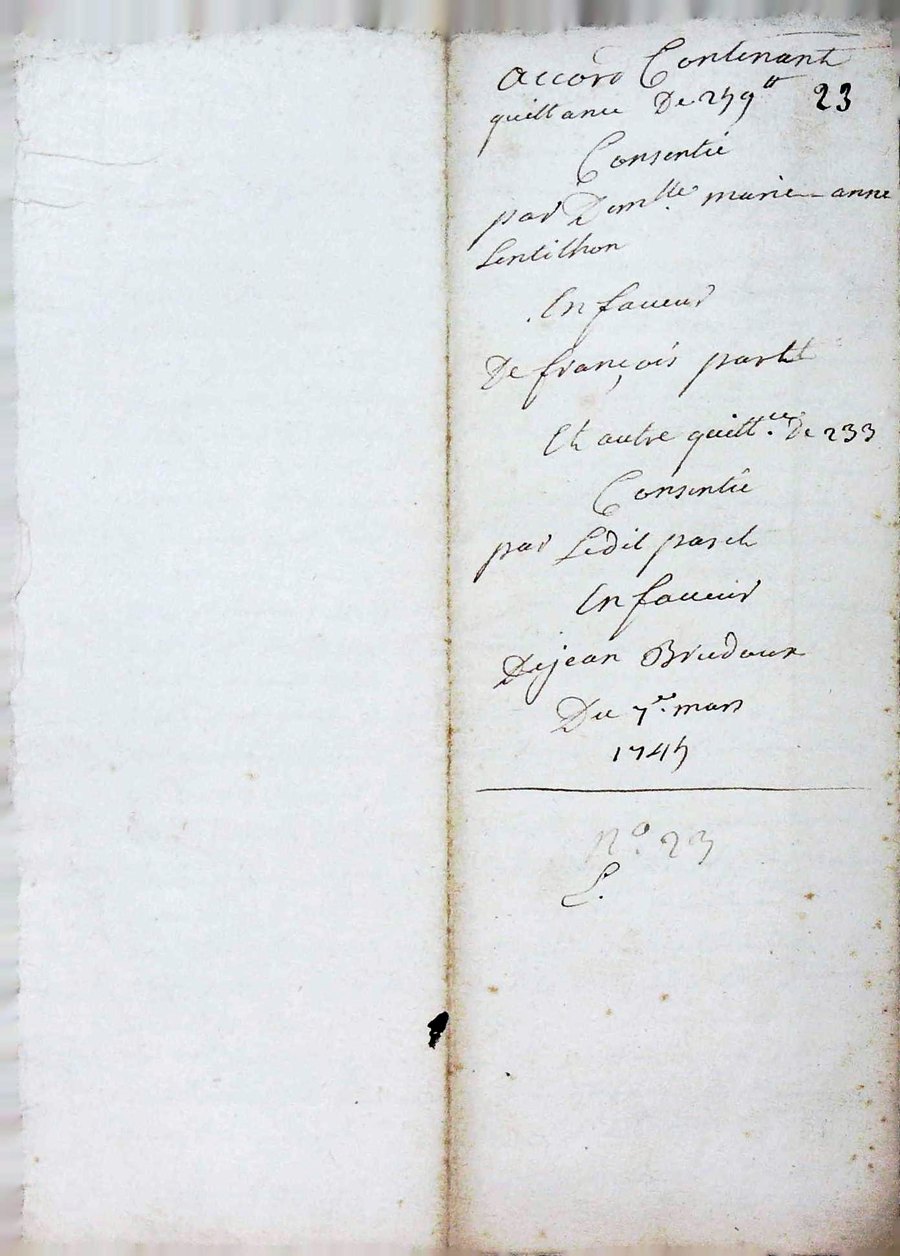 accord Contenant
quittance De 259 tt 23
Consentie
par Demlle. marie-anne
Lentilhon
En faueur
De françois
Et autre quittce. De 233
Consentie
par Ledit
En faueur
De jean Brudoux
Du 7e. mars
1745
No. 23
L.